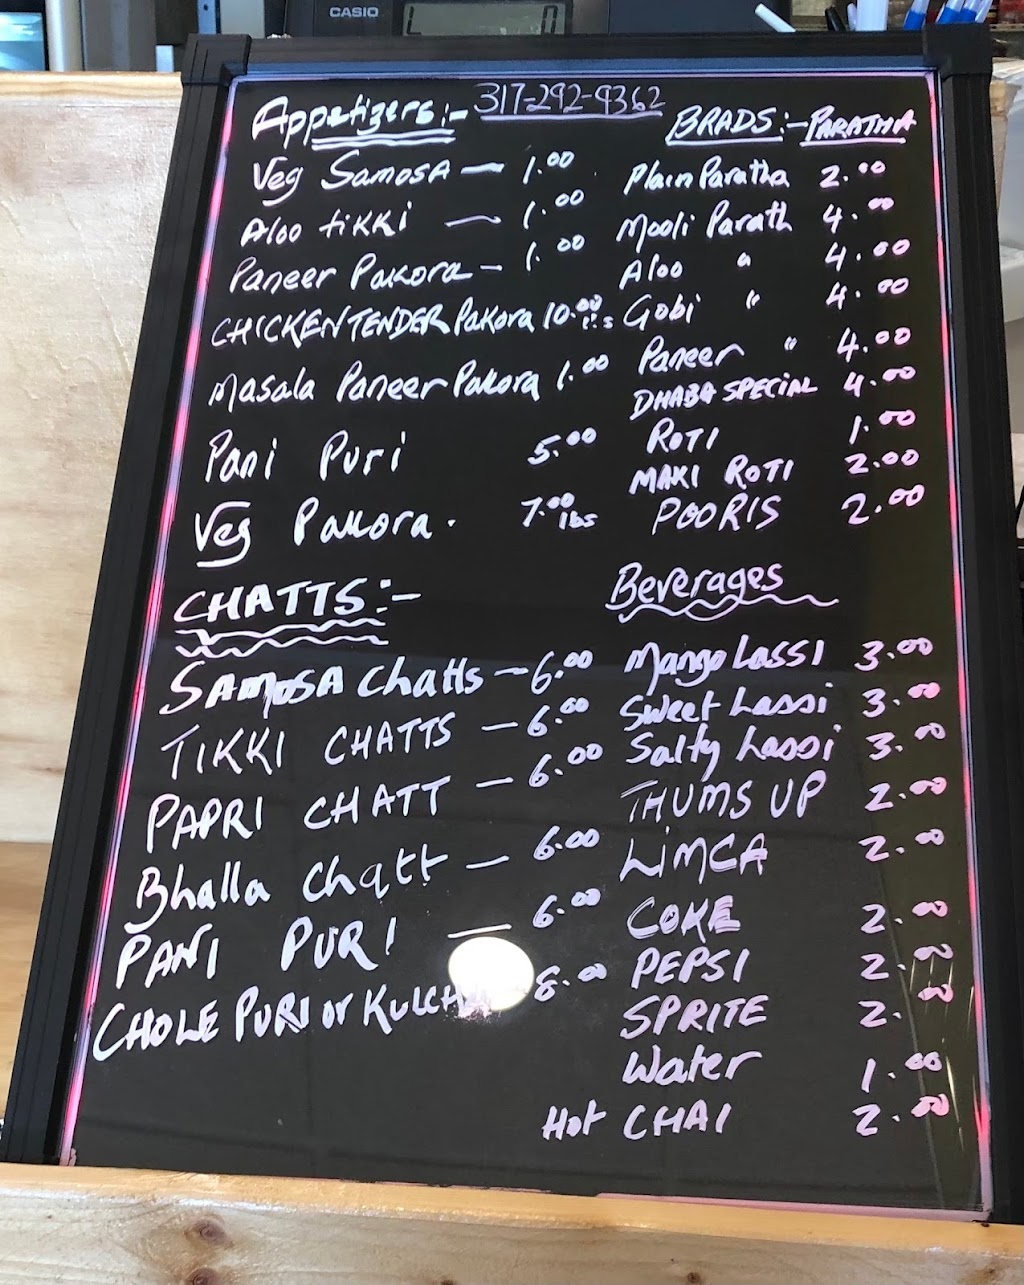 CASIO
317-292-9362
Appetizers:-
Veg Samosa — 1.00
Aloo tikki — 1.00
Paneer Pakora — 1.00
CHICKEN TENDER Pakora 10.00
Masala Paneer Pakora 1.00
Pani Puri 5.00
Veg Pakora. 7.00 lbs
CHATTS:-
SAMOSA Chatts — 6.00
TIKKI CHATTS — 6.00
PAPRI CHATT — 6.00
Bhalla Chatt — 6.00
PANI PURI — 6.00
CHOLE PURI or KULCHA 8.00
BRADS:- PARATHA
Plain Paratha 2.00
Mooli Parath 4.00
Aloo " 4.00
Gobi " 4.00
Paneer " 4.00
DHABA SPECIAL 4.00
ROTI 1.00
MAKI ROTI 2.00
POORIS 2.00
Beverages
Mango Lassi 3.00
Sweet Lassi 3.00
Salty Lassi 3.00
THUMS UP 2.00
LIMCA 2.00
COKE 2.00
PEPSI 2.00
SPRITE 2.00
Water 1.00
Hot CHAI 2.00